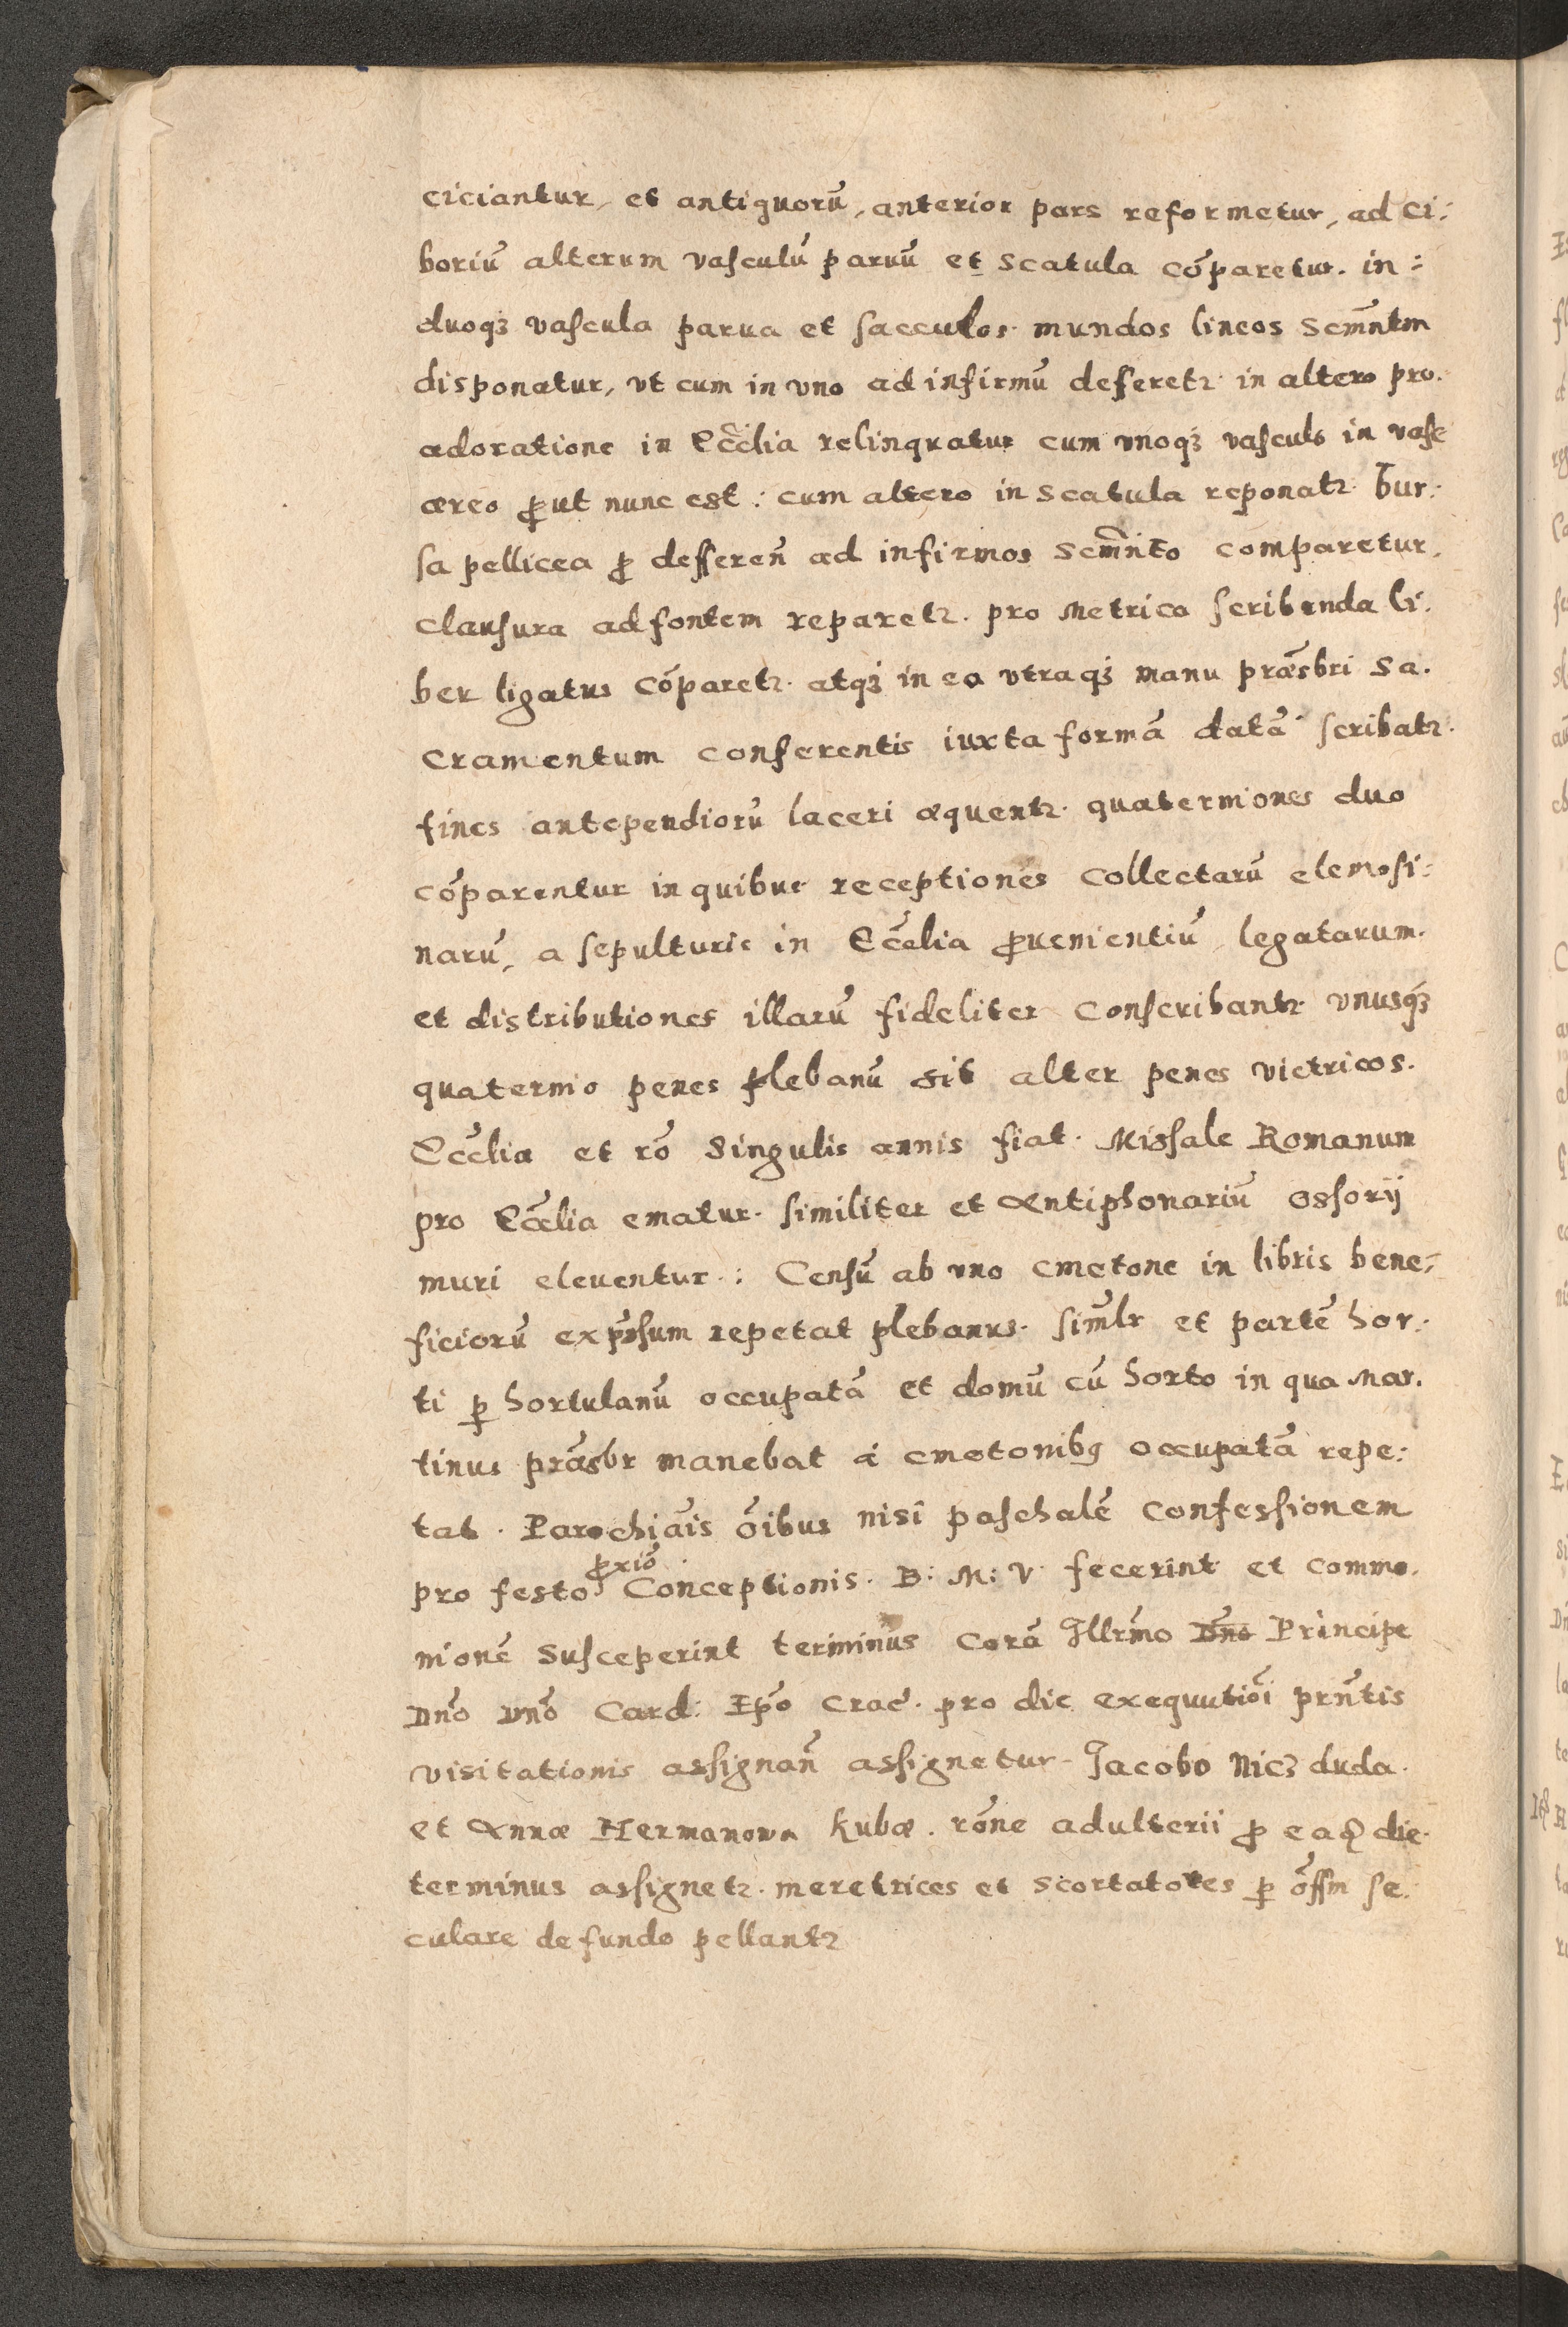 ciciantur, et antiquorũ, anterior pars reformetur, ad ci:
boriũ alterum vasculũ paruũ et scatula cõparetur. in:
duoqꝫ vascula parua et sacculos mundos lineos scm̃ntm
disponatur, vt cum in vno ad infirmũ defferetꝛ in altero pro.
adoratione in Eccl̃ia relinquatur cum vnoqꝫ vasculo in vase
æreo ꝓut nunc est: cum altero in scatula reponatꝛ bur:
sa pellicea ꝓ defferen̄ ad infirmos scm̃nto comparetur.
clausura ad fontem reparetꝛ. pro Metrica scribenda li.
ber ligatus cõparetꝛ. atqꝫ in ea vtraqꝫ manu præ̃sbri sa.
cramentum conferentis iuxta formã datã scribatꝛ.
fines antependiorũ laceri æquentꝛ. quaterniones duo
cõparentur in quibus receptiones collectarũ elemosi:
narũ, a sepulturis in Eccl̃ia ꝓuenientiũ, legatarum.
et distributiones illarũ fideliter conscribantꝛ vnusqꝫ
quaternio penes plebanũ sit alter penes vietricos.
Eccl̃ia et rõ singulis annis fiat. Missale Romanum
pro Eccl̃ia ematur. similiter et Antiphonariũ ossorij
muri eleuentur.: Censũ ab vno cmetone in libris bene:
ficiorũ exp̃ssum repetat plebanus. sim̃lr et partẽ hor:
ti ꝑ hortulanũ occupatã et domũ cũ horto in qua Mar.
tinus præ̃sbr manebat á cmetonibꝯ occupatã repe:
tat. Parochiãis õibus nisi paschalẽ confessionem
pro festo ꝓxiõ Conceptionis. B: M: V. fecerint et commo.
nionẽ susceperint terminus corã Illr̃mo Dño Principe
Dño Dño Card: Ep̃o Crac̃. pro die exequutiõi prñtis
visitationis assignañ assignetur. Jacobo Nicꝫ duda.
et Annæ Hermanowa Kubæ. rõne adulterii ꝓ eadͥ die.
terminus assignetꝛ. meretrices et scortatores ꝑ õffm se:
culare de fundo pellantꝛ